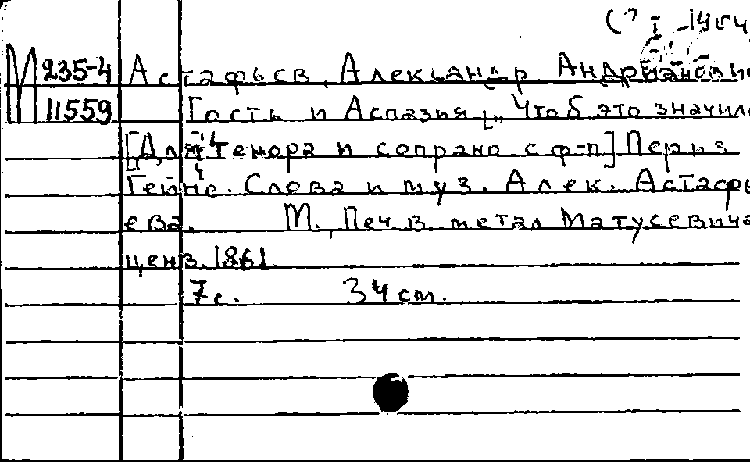 М 235-4 Астафьев, Александр Андрианови
11559 Гость и Аспазия [„Что б это значило
[Для тенора и сопрано с ф-п] Перья
Гейне. Слова и муз. Алек. Астафь
ева. М., Печ. в метал Матусевича
ценз. 1861
7 с. 34 см.